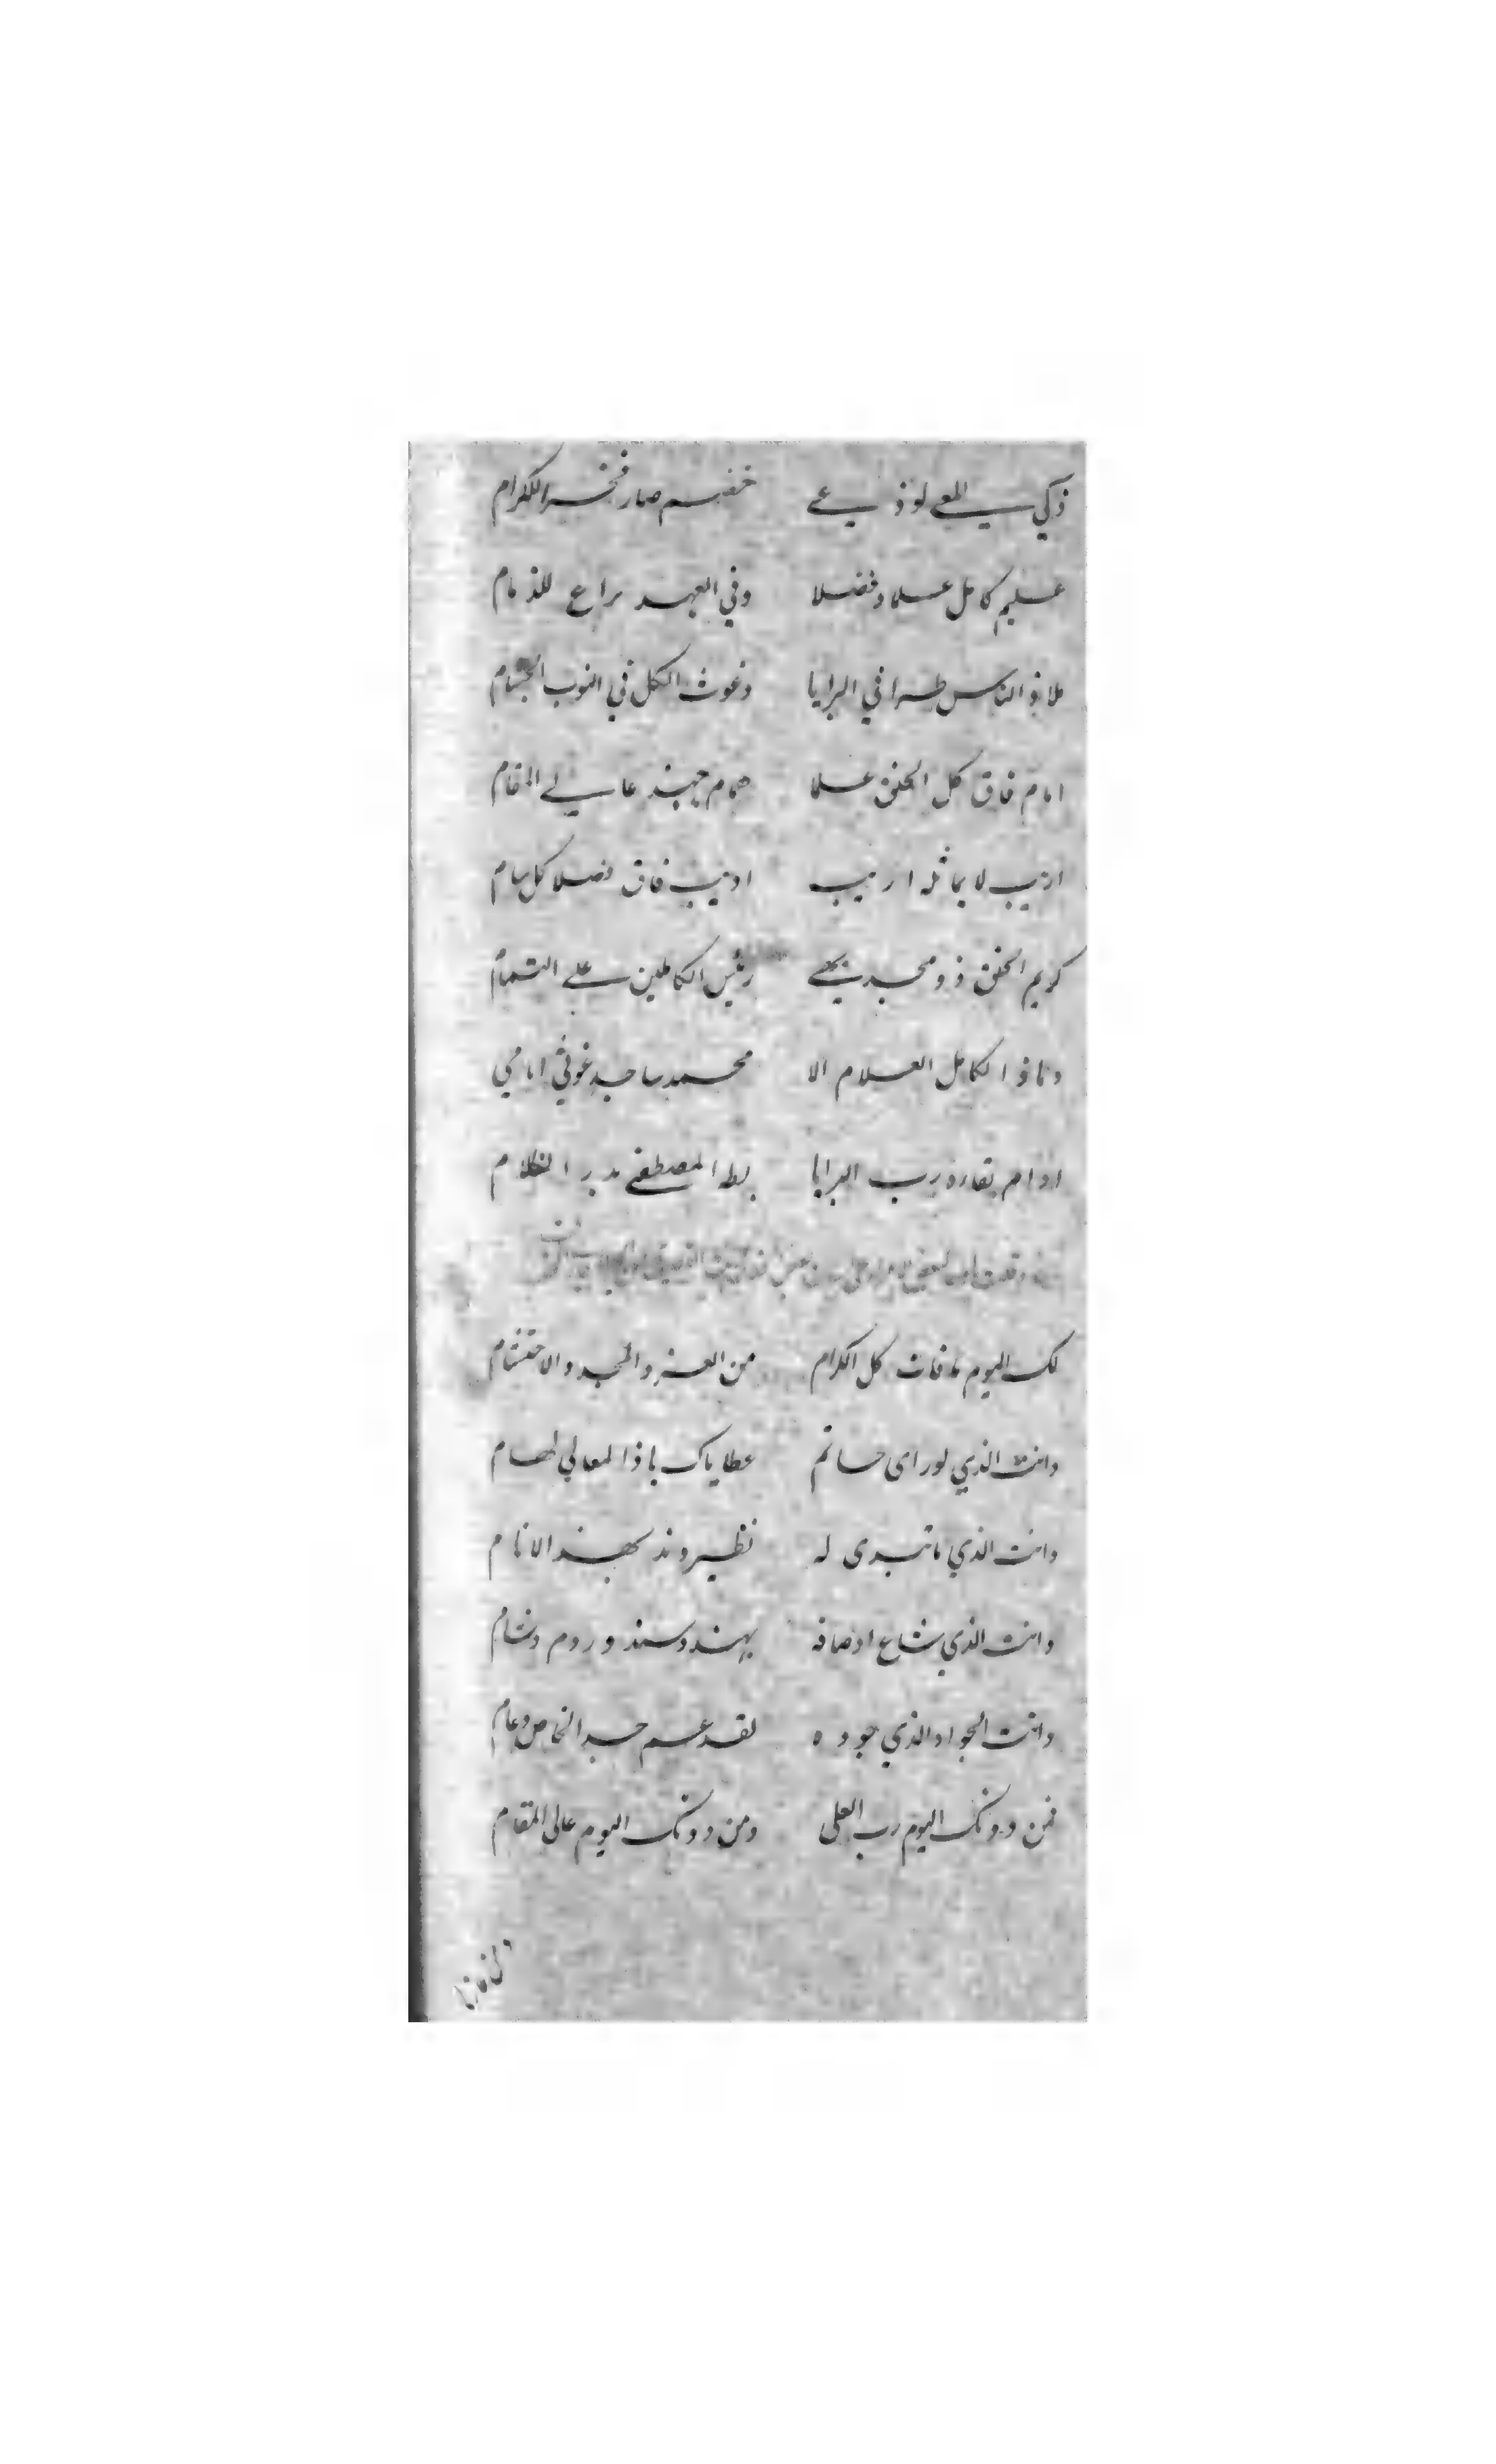 ذكي المعي لوذعي خضم صار فخر اللكرام
عليم كامل علما وفضلا وفي العهد راع للذمام
ملاذ الناس طرا في البرايا وغوث الكل في النوب الجسام
امام فاق كل الخلق علما همام جهبذ عالي المقام
اريب لا يماثله اريب اديب فاق فضلا كل سام
كريم الخلق ذو مجد بهي رئيس الكاملين علي التمام
وماذا الكامل العلام الا محمد ساجد غوثي امامي
ادام بقاءه رب البرايا بطه المصطفي بدر الظلام
لك اليوم ما فات كل الكرام من العز والمجد والاحتشام
وانت الذي لو راى حاتم عطاياك ياذا المعالي لهام
وانت الذي ما تبدى له نظير وند بهذ الانام
وانت الذي شاع اوصافه بهند وسند وروم وشام
وانت الجواد الذي جوده لقد عم حسبر الخاص وعام
فمن دونك اليوم رب العلى ومن دونك اليوم عالى المقام